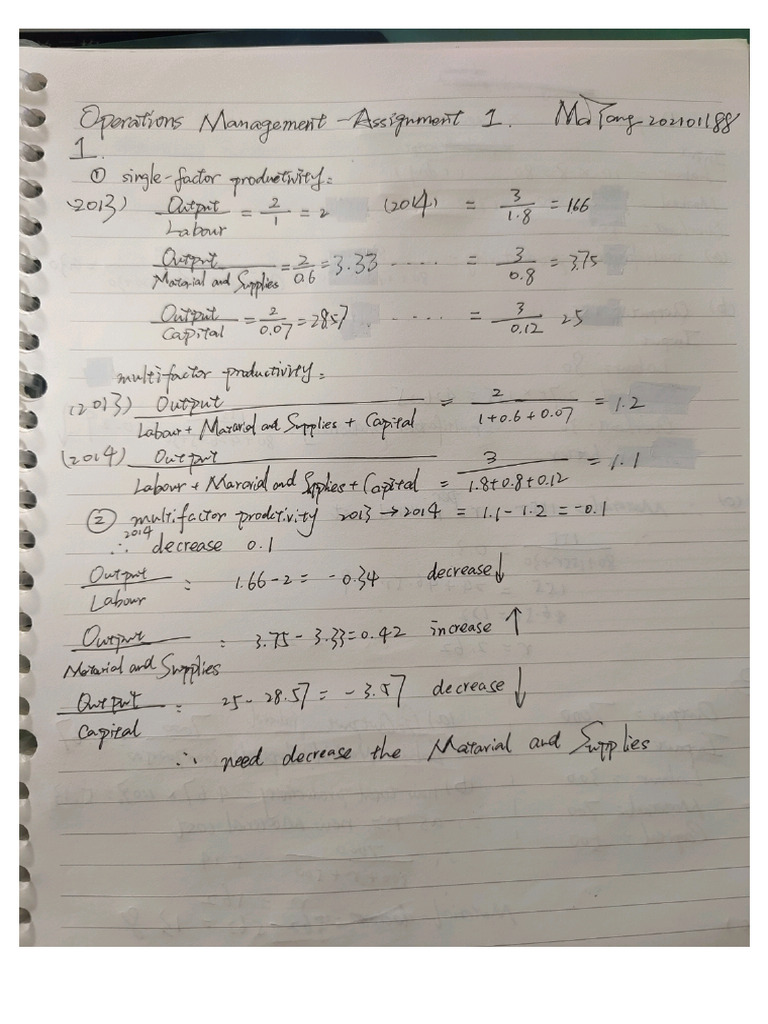 Operations Management - Assignment 1. Ma Tang - 202101188
1.
① single-factor productivity:
(2013) Output / Labour = 2/1 = 2 (2014) = 3/1.8 = 166
Output / Matarial and Supplies = 2/0.6 = 3.33 ..... = 3/0.8 = 3.75
Output / Capital = 2/0.07 = 28.57 ..... = 3/0.12 25
multifactor productivity:
(2013) Output / Labour + Matarial and Supplies + Capital = 2 / 1+0.6+0.07 = 1.2
(2014) Output / Labour + Mararial and Spplies + Capital = 3 / 1.8+0.8+0.12 = 1.1
② multifactor prodctivity 2013 → 2014 = 1.1 - 1.2 = -0.1
∴ 2014 decrease 0.1
Output / Labour : 1.66 - 2 = -0.34 decrease ↓
Output / Matarial and Supplies : 3.75 - 3.33 = 0.42 increase ↑
Output / Capital : 25 - 28.57 = -3.57 decrease ↓
∴ need decrease the Matarial and Supplies